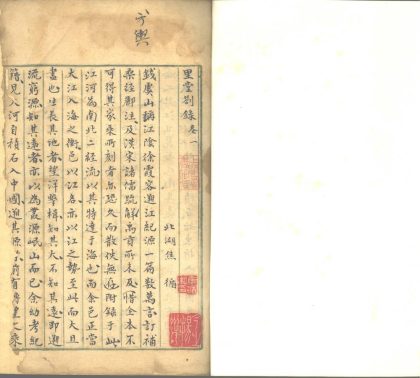 方輿
里堂別錄卷一
北湖焦循
錢虞山稱江陰徐霞客遡江紀源一篇數萬言訂補
桑經酈注及漢宋諸儒疏解禹貢所未及惜全本不
可得其家乘所刻者亦恐久而散佚無遺附錄于此
江河為南北二經流以其特達于海也而余邑正當
大江入海之衝邑以江名亦以江之勢至此而大且
盡也生長其地者望洋擊楫知其大不知其遠即遡
流窮源知其遠者亦以為發源岷山而已余幼考紀
籍見大河自積石入中國遡其源前有之乘